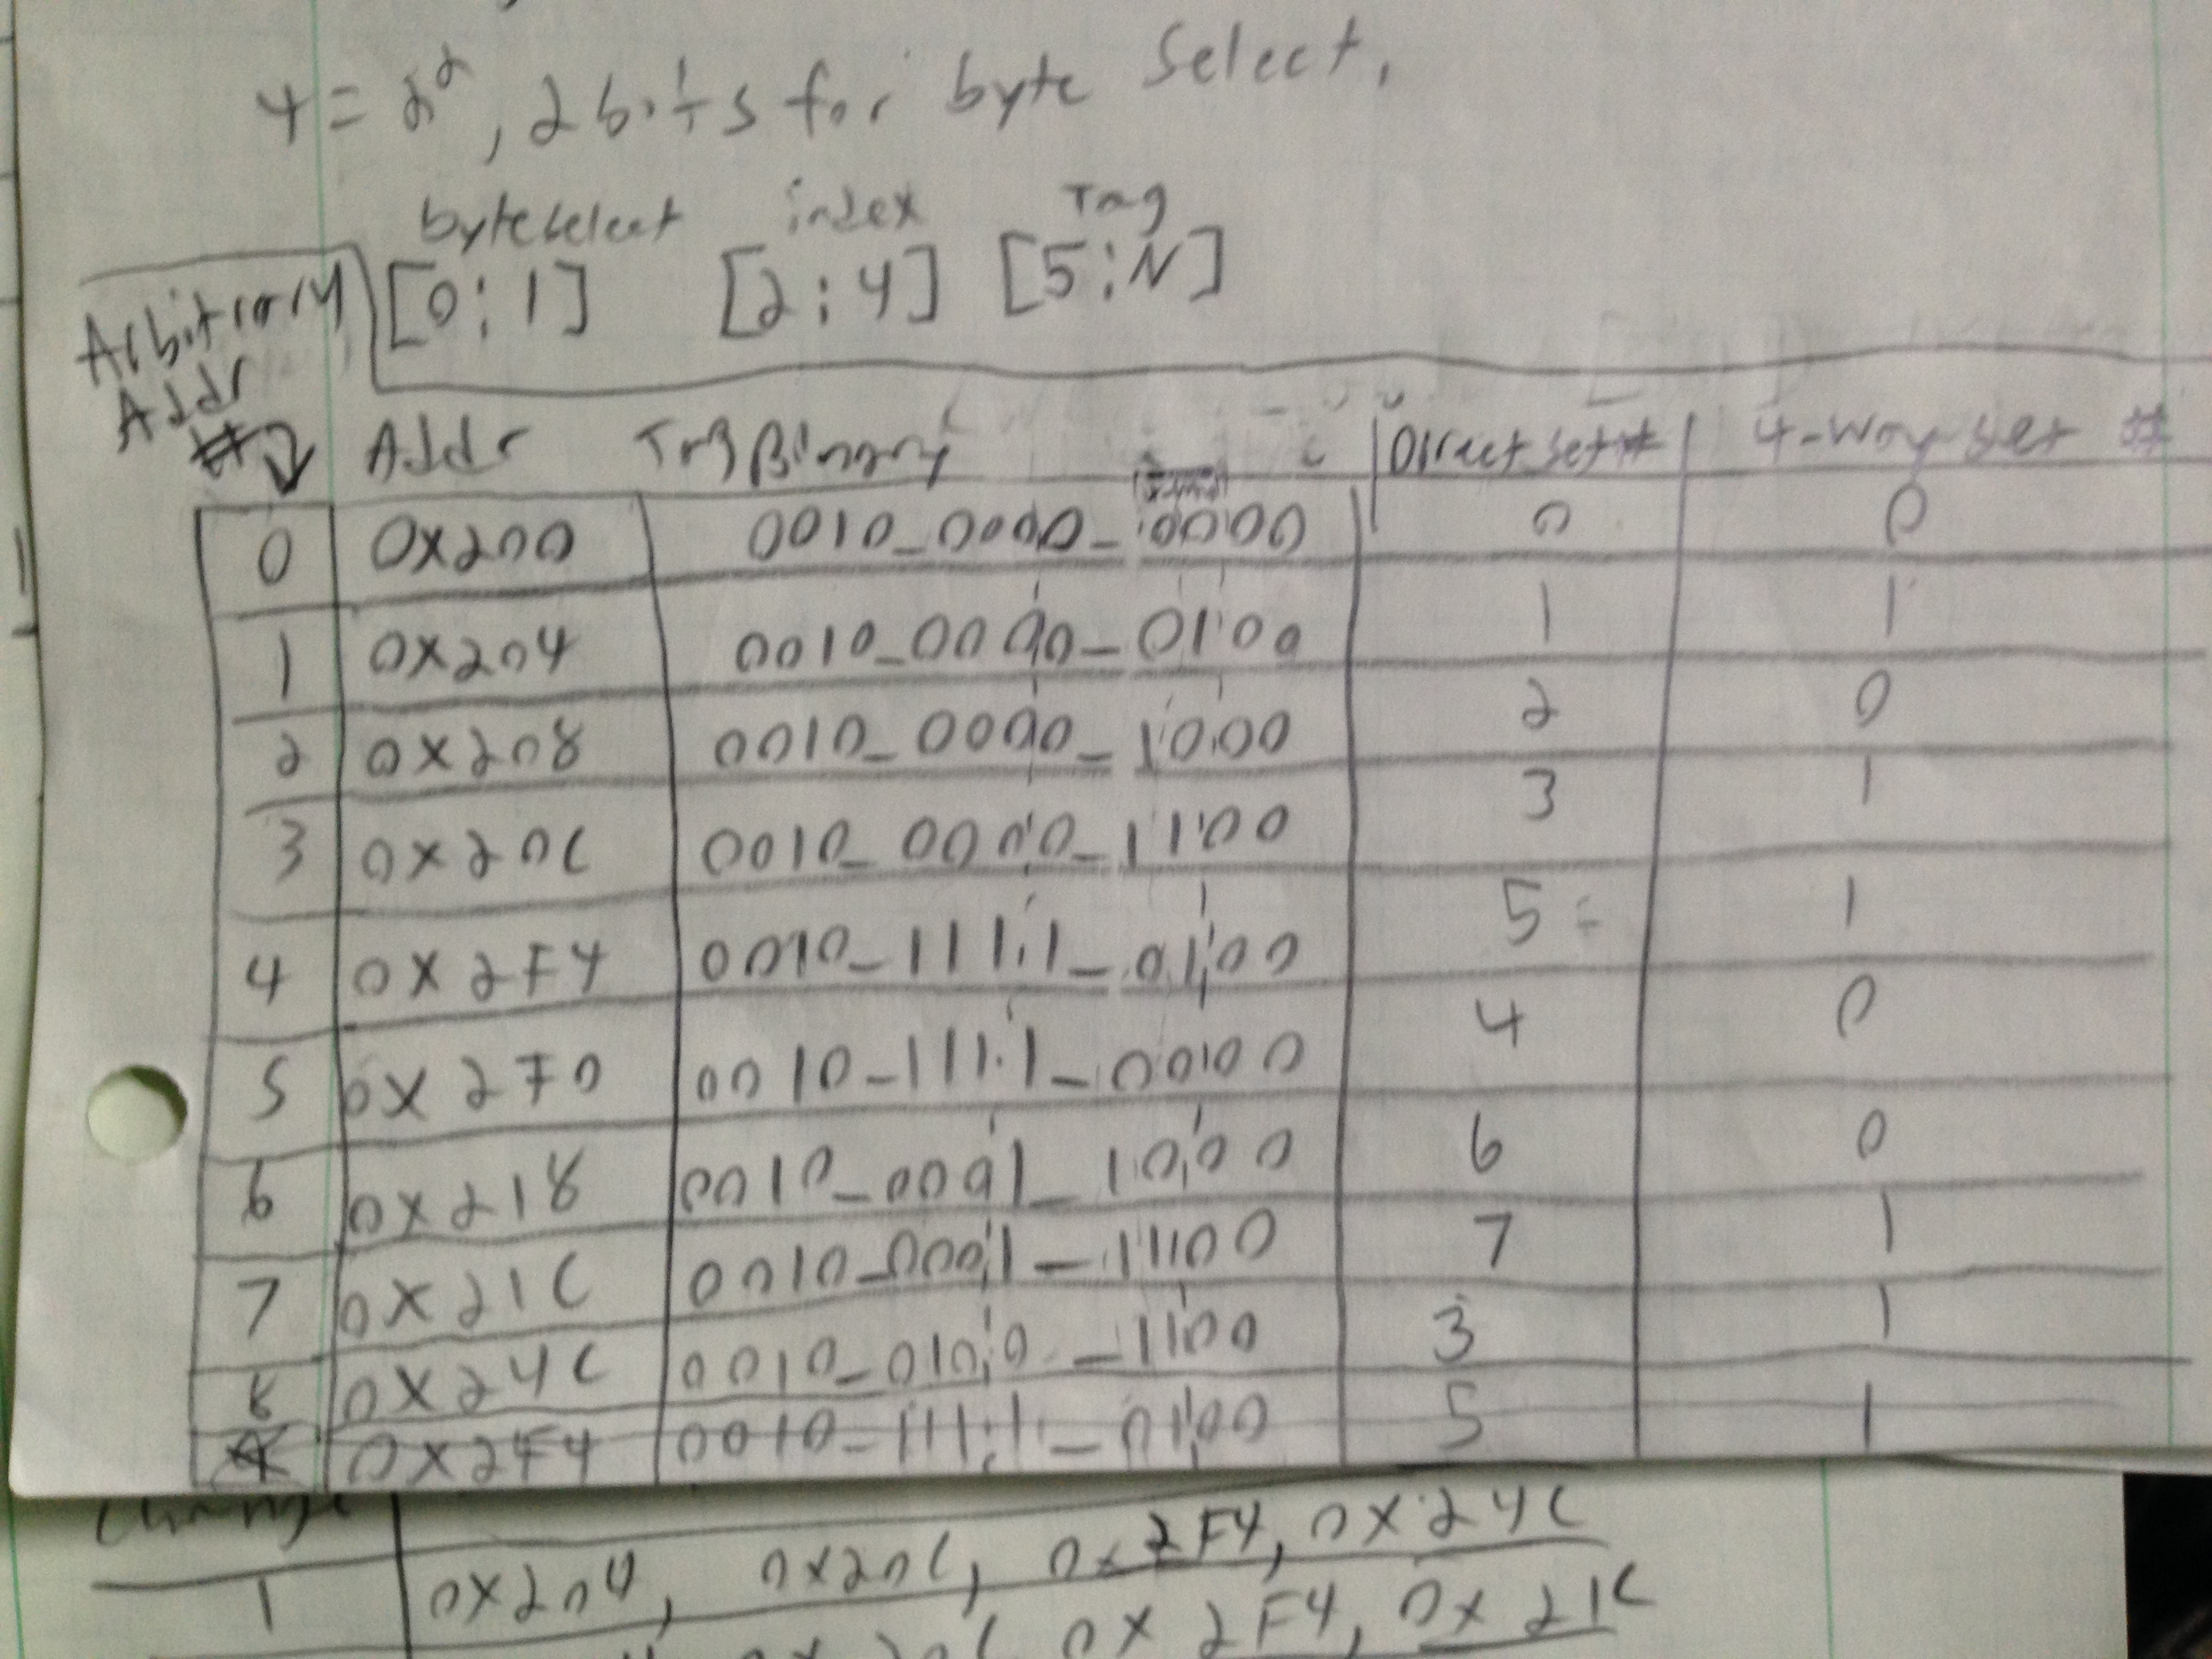 4 = 2², 2 bits for byte select,
byteselect index Tag
[0:1] [2:4] [5:N]
Arbitrary
Addr
# Addr Tag Binary Direct set # 4-way set #
0 0x200 0010_0000_0000 0 0
1 0x204 0010_0000_0100 1 1
2 0x208 0010_0000_1000 2 0
3 0x20C 0010_0000_1100 3 1
4 0x2F4 0010_1111_0100 5 1
5 0x2F0 0010_1111_0000 4 0
6 0x218 0010_0001_1000 6 0
7 0x21C 0010_0001_1100 7 1
8 0x24C 0010_0100_1100 3 1
0x2F4 0010_1111_0100 5 1
0x2F4, 0x24C
1 0x204, 0x20C,
0x2F4, 0x21C